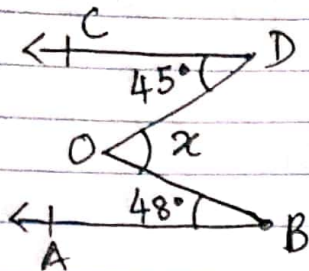 C
D
45°
O
x
48°
A
B